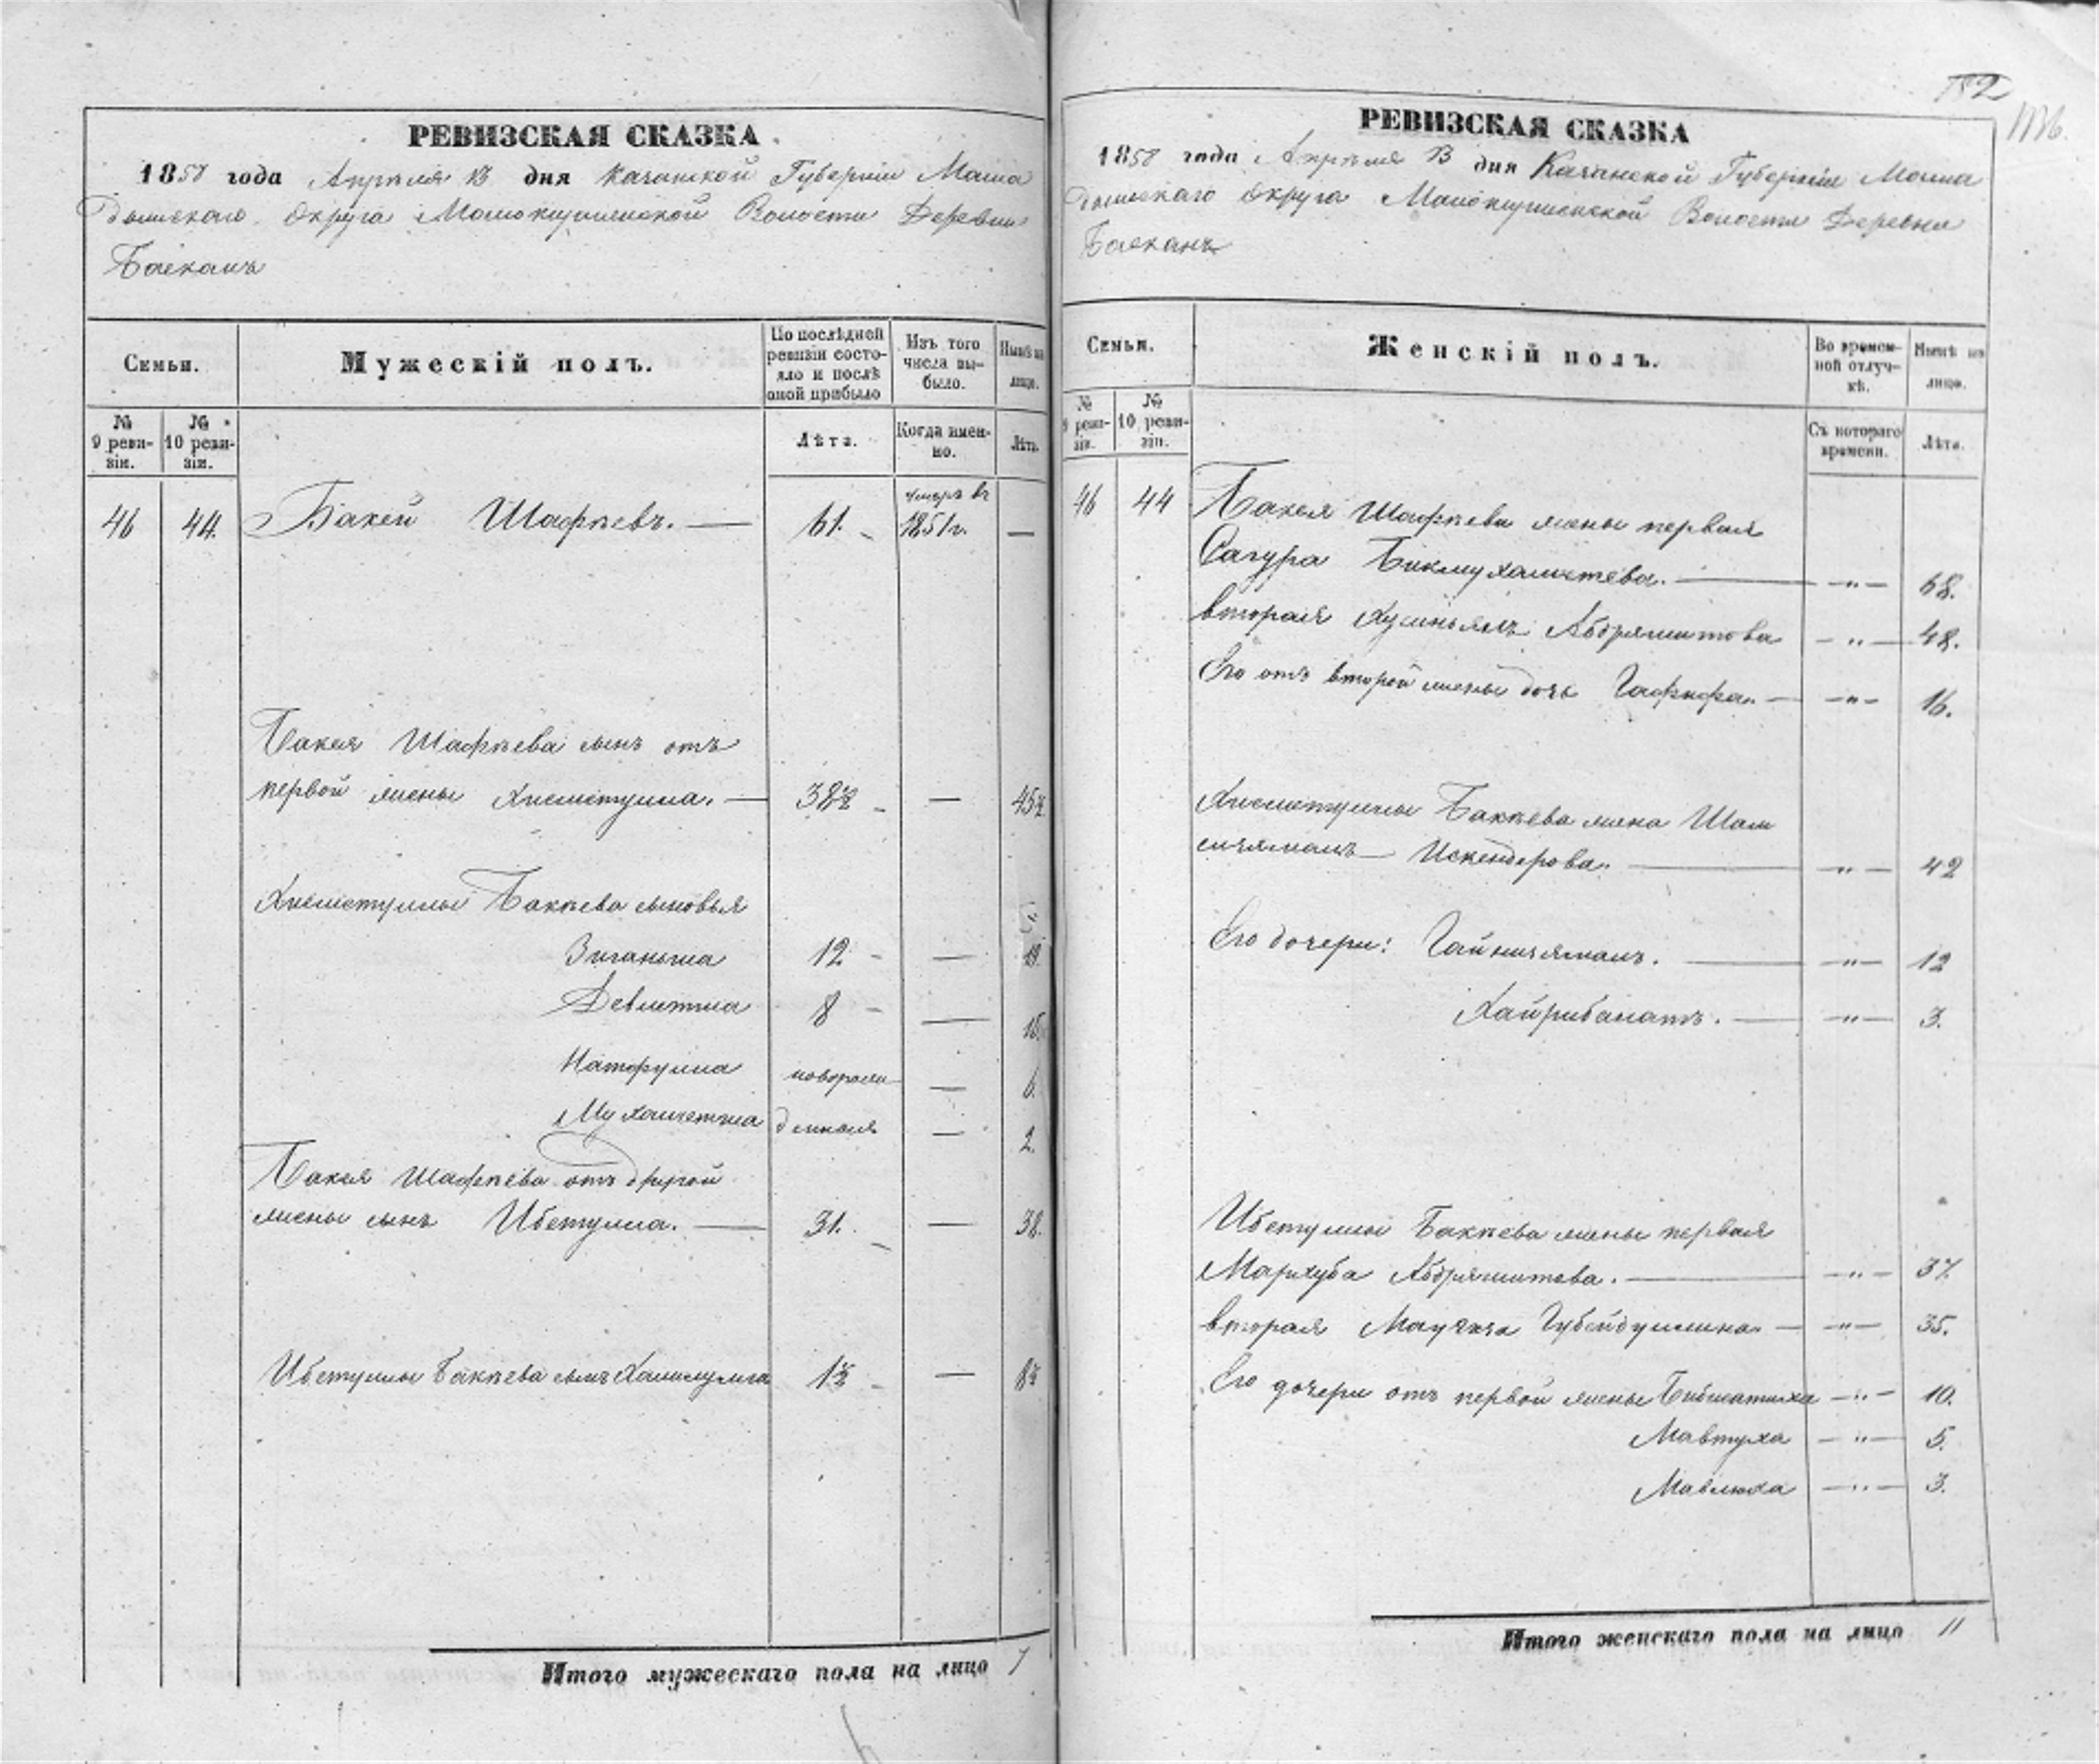 182
РЕВИЗСКАЯ СКАЗКА
1858 года Апрѣля 13 дня Казанской Губерніи Мама
дышскаго округа Мамокирменской Волости Деревни
Баеканъ
Семьи.
Мужескій полъ.
По послѣдней ревизіи состо-
яло и послѣ
оной прибыло
Изъ того
числа вы-
было.
Нынѣ на
лицо.
№
9 реви-
зіи.
№
10 реви-
зіи.
Лѣта.
Когда имен-
но.
Лѣта.
46 44. Бакей Шафѣевъ. — 61. умеръ въ
1851 г. —
Бакея Шафѣева сынъ отъ
первой жены Хисметулла. — 38½ — 45½
Хисметуллы Бакѣева сыновья
Зиганьша 12 — 19.
Девлетша 8 — 15.
Натфулла новорож — 6.
Мухаметша денные — 2.
Бакея Шафѣева отъ другой
жены сынъ Ибетулла. — 31. — 38.
Ибетуллы Бакѣева сынъ Халиулла 1½ — 8½
Итого мужескаго пола на лицо 7
РЕВИЗСКАЯ СКАЗКА
1858 года Апрѣля 13 дня Казанской Губерніи Мама
дышскаго округа Мамокирменской Волости Деревни
Баеканъ
Семьи.
Женскій полъ.
Во времен-
ной отлуч-
кѣ.
Нынѣ на
лицо.
№
9 реви-
зіи.
№
10 реви-
зіи.
Съ котораго
времени.
Лѣта.
46 44 Бакея Шафѣева жены первая
Сагура Бикмухаметева. — „ — 68.
вторая Абдряшитова — „ — 48.
Его отъ второй жены дочь Гафифа. — „ — 16.
Хисметуллы Бакѣева жена Шам
сиямалъ Искендерова. — „ — 42
Его дочери: Гайниямалъ. — „ — 12
Хайрибанатъ. — „ — 3.
Ибетуллы Бакѣева жены первая
Мархуба Абдряшитова. — „ — 37.
вторая Губейдуллина — „ — 35.
Его дочери отъ первой жены — „ — 10.
Мавтуха — „ — 5.
Мавлюха — „ — 3.
Итого женскаго пола на лицо 11